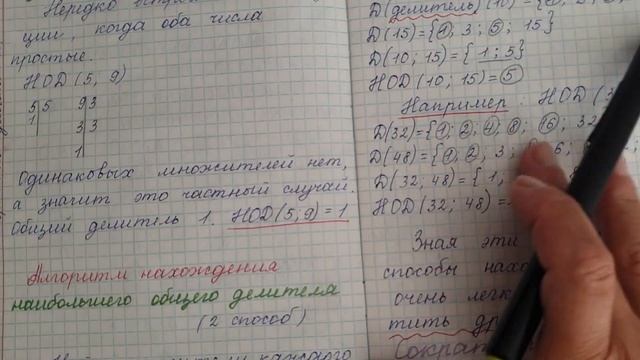 Нередко
ции, когда оба числа
простые.
НОД (5, 9)
5 5 9 3
1 3 3
1
Одинаковых множителей нет,
а значит это частный случай.
Общий делитель 1. НОД(5; 9) = 1
Алгоритм нахождения
наибольшего общего делителя
(2 способ)
каждого
D(делитель) (10) = {
D(15) = {1; 3; 5; 15}
D(10; 15) = { 1; 5}
НОD (10; 15) = 5
Например: НОD (3
D(32) = {1; 2; 4; 8; 16; 32
D(48) = {1, 2, 3; 6;
D(32, 48) = { 1,
НОD (32; 48) =
Зная эти
способы нахо
очень легк
тить др
Сократ